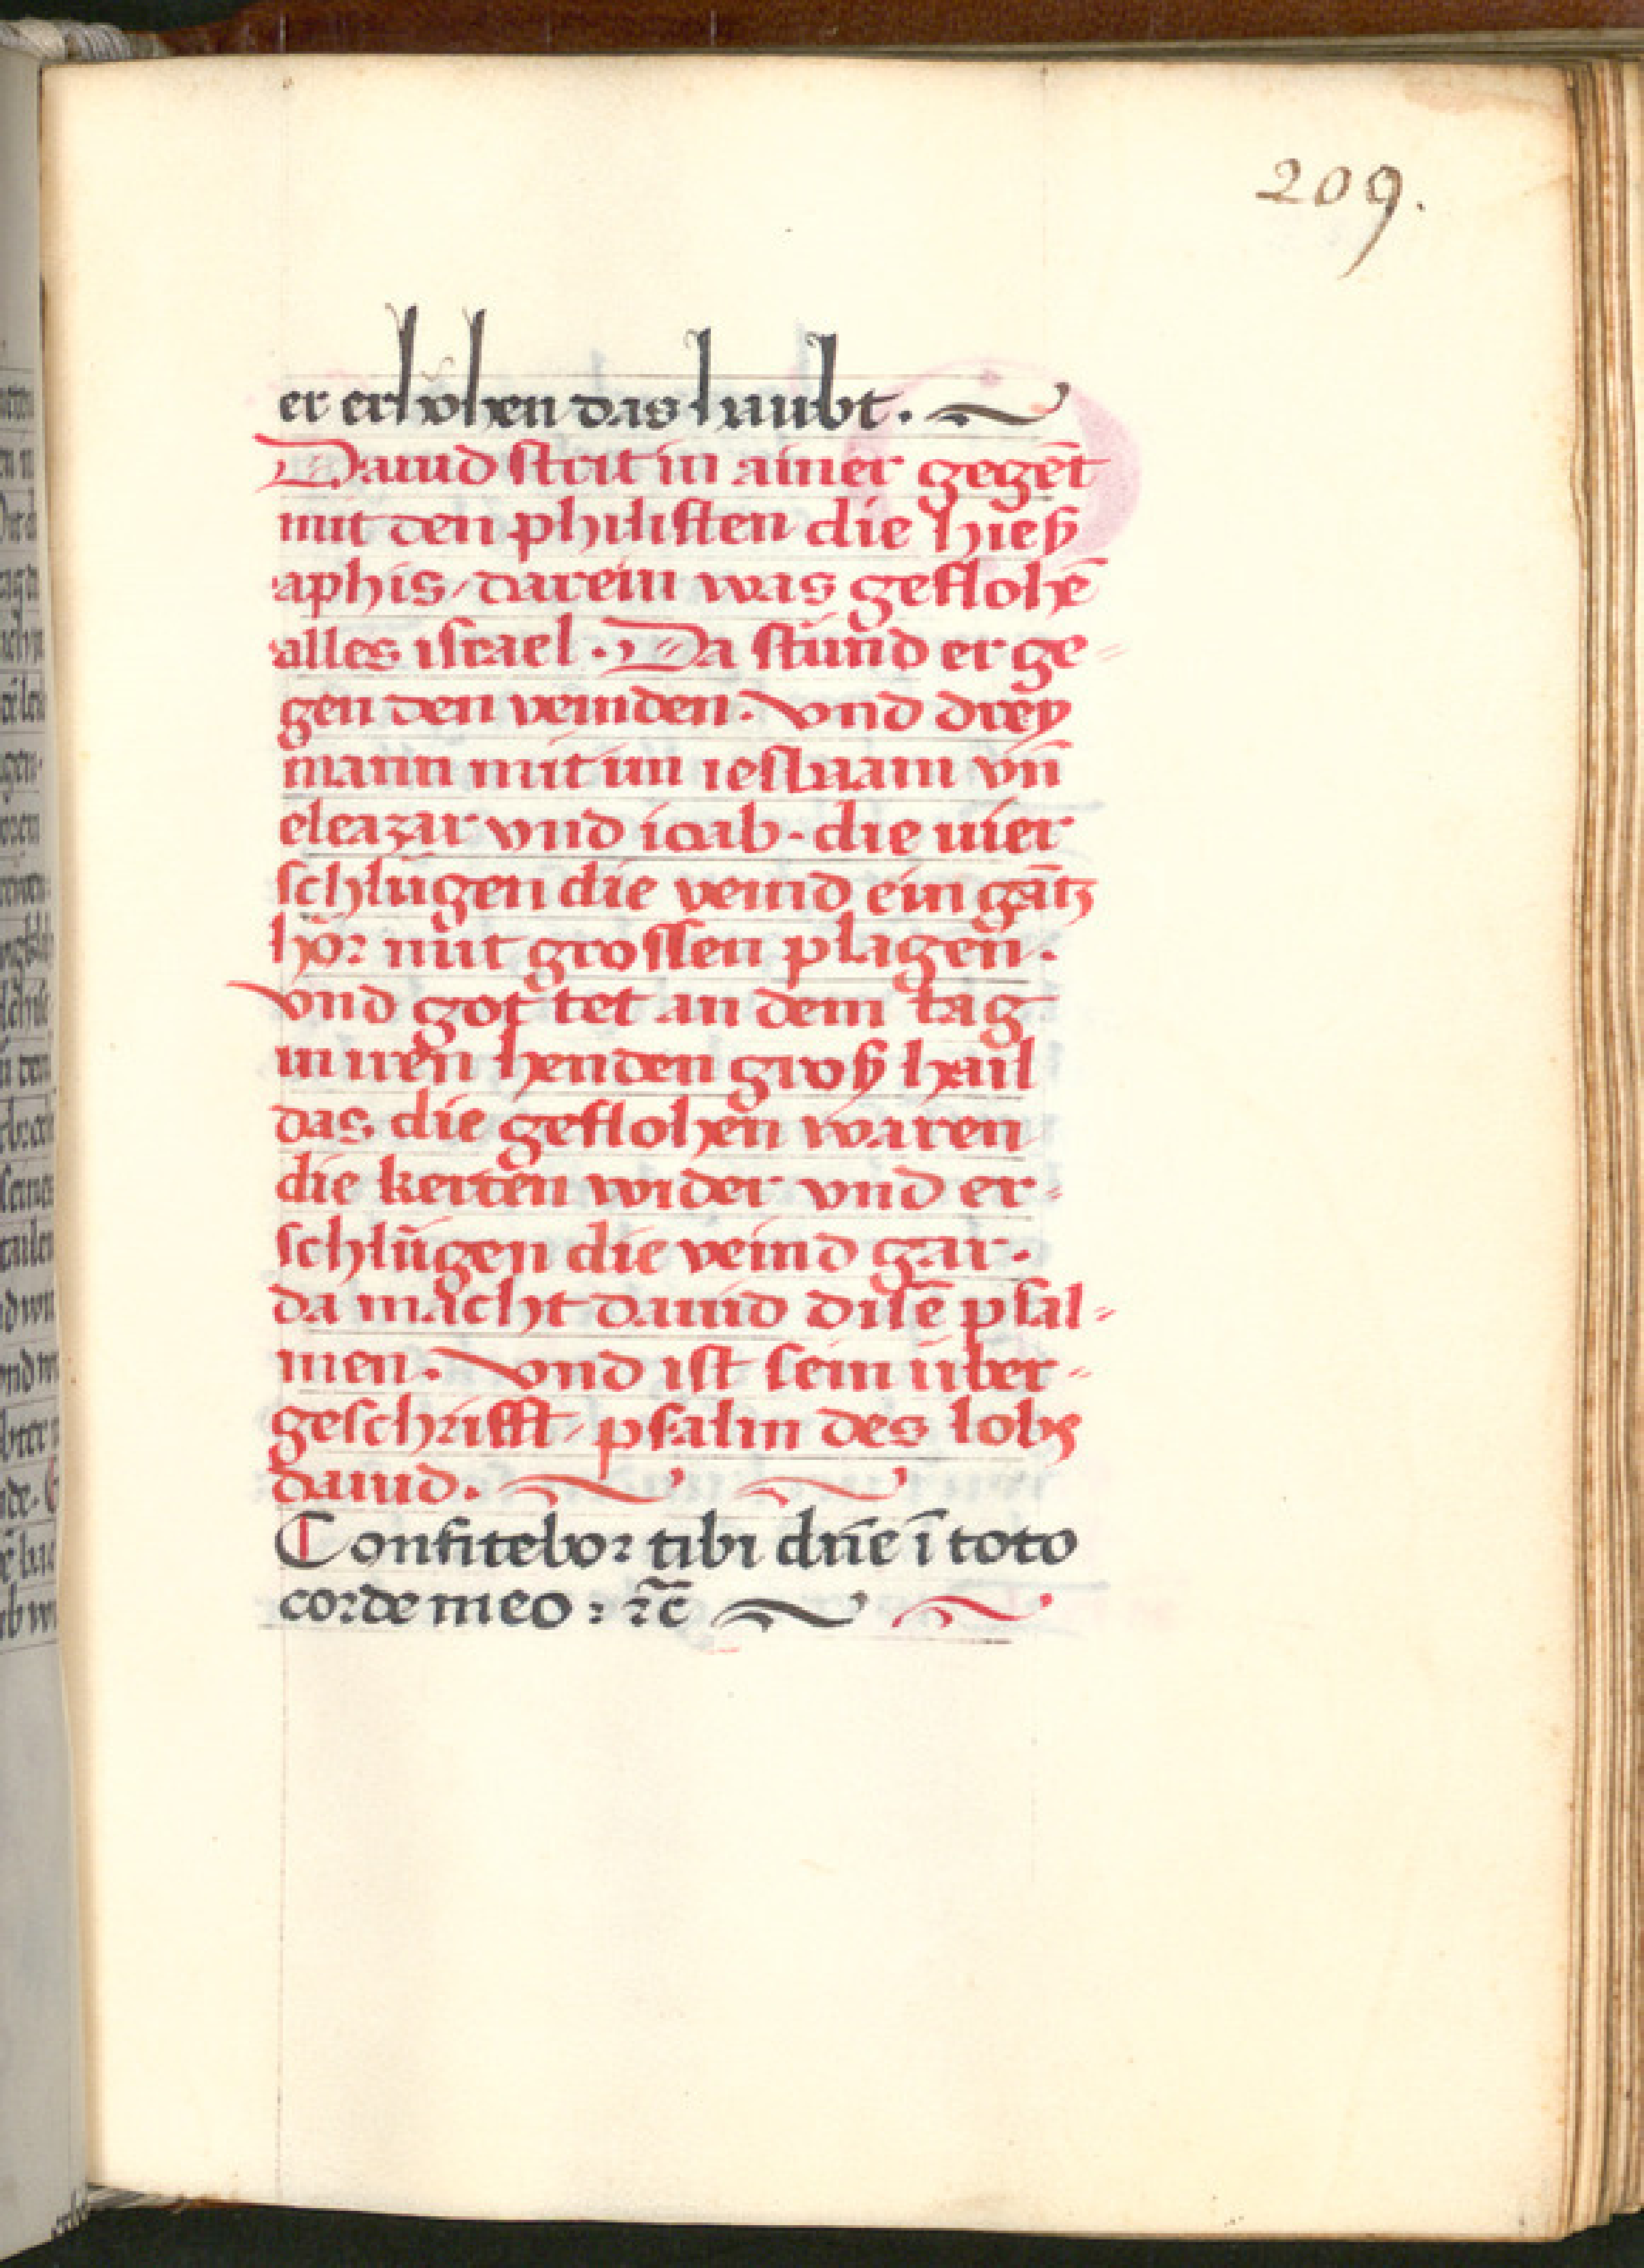 209.
er erhöhen das haubt.
Dauid streit in ainer gegēt
mit den philisten die hieß
aphis / darein was geflohē
alles israel. Da stůnd er ge=
gen den veinden. vnd drey
mann mit im iesbaam vn̄
eleazar vnd ioab. die uier
schlůgen die veind ein gātz
hör mit grossen plagen.
vnd got tet an dem tag
in iren henden groß hail
das die geflohen waren
die kerten wider vnd er=
schlůgen die veind gar.
da macht dauid disē psal=
men. Vnd ist sein über=
geschrifft / psalm des lobs
dauid.
Confitebor tibi dn̄e ī toto
corde meo : ꝛc̄